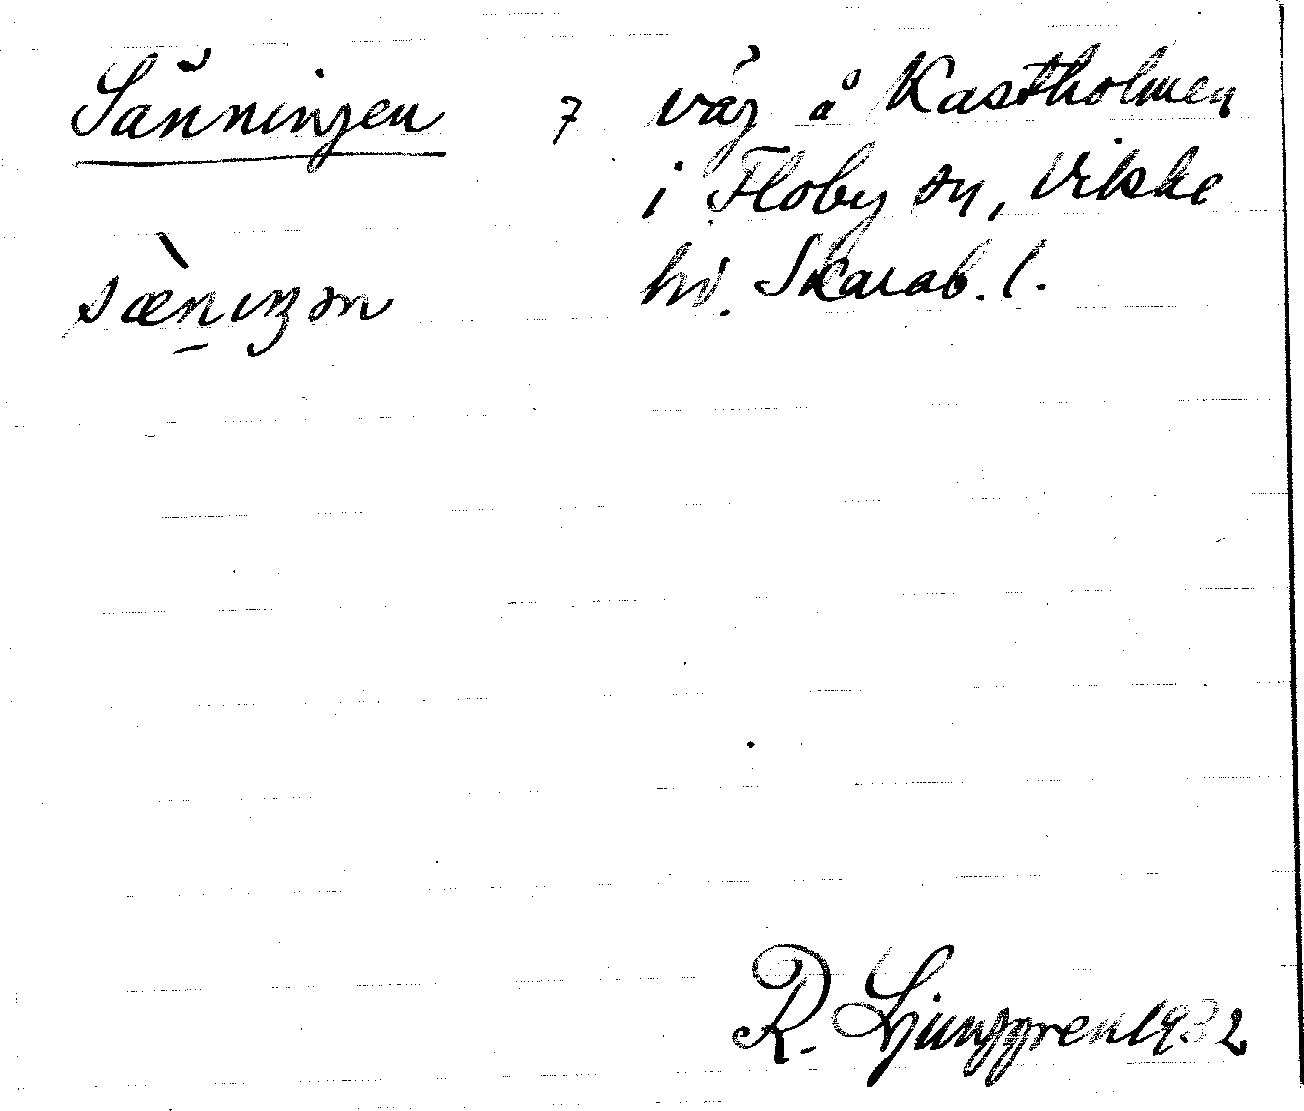 Sänningen 7 väg å Kastholmen
i Floby sn, Vilske
sæ̀nıŋən hd. Skarab. l.
R. Ljunggren 1932